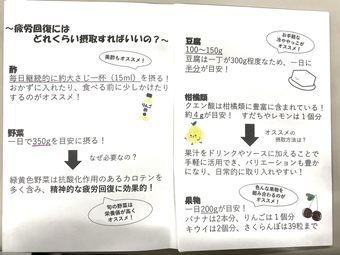 ～疲労回復には
どれくらい摂取すればいいの？～
黒酢もオススメ！
酢
毎日継続的に約大さじ一杯（15ml）を摂る！
おかずに入れたり、食べる前に少しかけたり
するのがオススメ！
りんご酢
野菜
一日で350gを目安に摂る！
なぜ必要なの？
緑黄色野菜は抗酸化作用のあるカロテンを
多く含み、精神的な疲労回復に効果的！
旬の野菜は
栄養価が高く
オススメ！
お手軽な
冷ややっこが
オススメ！
豆腐
100～150g
豆腐は一丁が300g程度なため、一日に
半分が目安！
柑橘類
クエン酸は柑橘類に豊富に含まれている！
約4gが目安！　すだちやレモンは１個分
オススメの
摂取方法は？
果汁をドリンクやソースに加えることで
手軽に活用でき、バリエーションも豊か
になり、日常的に取り入れやすい！
色んな果物を
組み合わるのが
オススメ！
果物
一日200gが目安！
バナナは2本分、りんごは１個分
キウイは2個分、さくらんぼは39粒まで